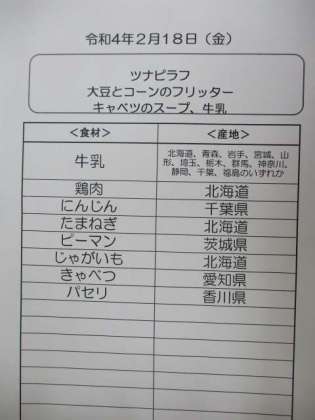 令和4年2月18日（金）
ツナピラフ
大豆とコーンのフリッター
キャベツのスープ、牛乳
＜食材＞ ＜産地＞
牛乳 北海道、青森、岩手、宮城、山
形、埼玉、栃木、群馬、神奈川、
静岡、千葉、福島のいずれか
鶏肉 北海道
にんじん 千葉県
たまねぎ 北海道
ピーマン 茨城県
じゃがいも 北海道
きゃべつ 愛知県
パセリ 香川県